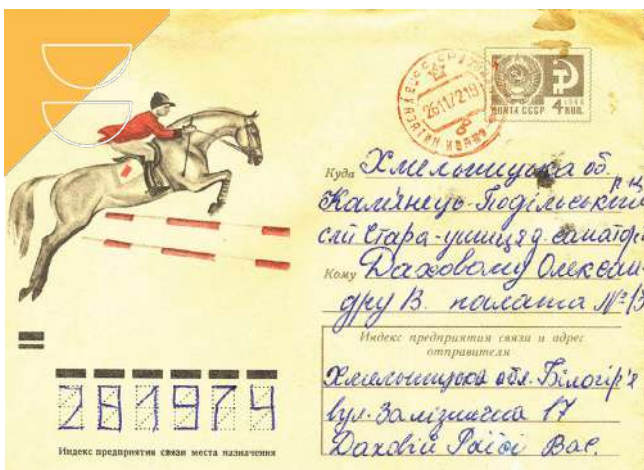 ПОЧТА СССР
1966
4 КОП.
26 11 72 19
Куда Хмельницька об.
Кам'янець-Подільський р-н
Стара-ушиця
Кому Даховому Олексан
дру В. палата № 13
Индекс предприятия связи и адрес
отправителя
Хмельницька обл. Білогір'я
вул. Залізнична 17
Даховій Раїсі Вас.
281974
Индекс предприятия связи места назначения